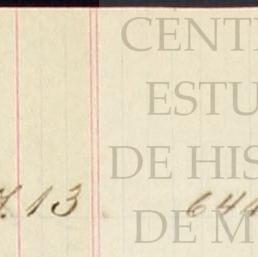 CENT
ESTU
DE HIS
DE M
13 644